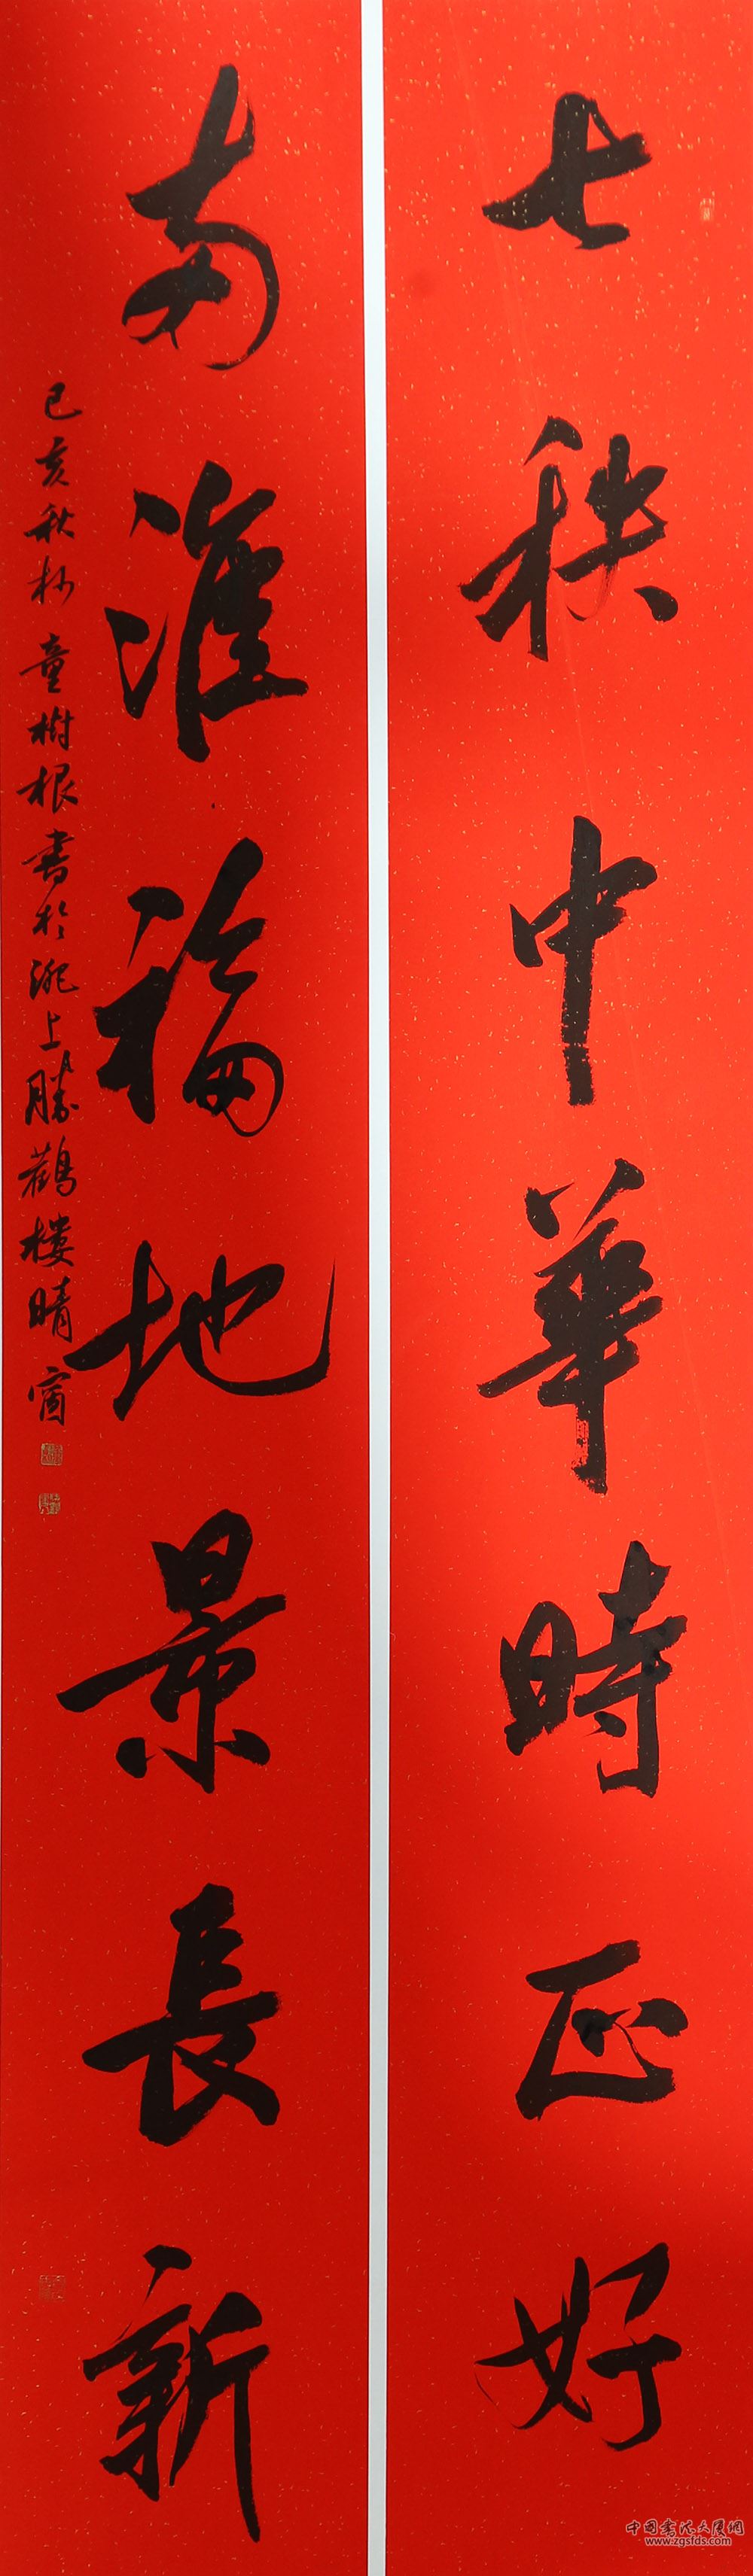 七秩中華時正好
南淮福地景長新
己亥秋杪童樹根書於淝上勝鸛樓晴窗
中国书法大厦网
www.zgsfds.com